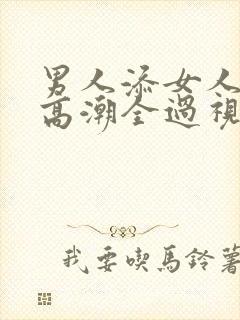 男人添女人
高潮全過視
我要喫馬鈴薯